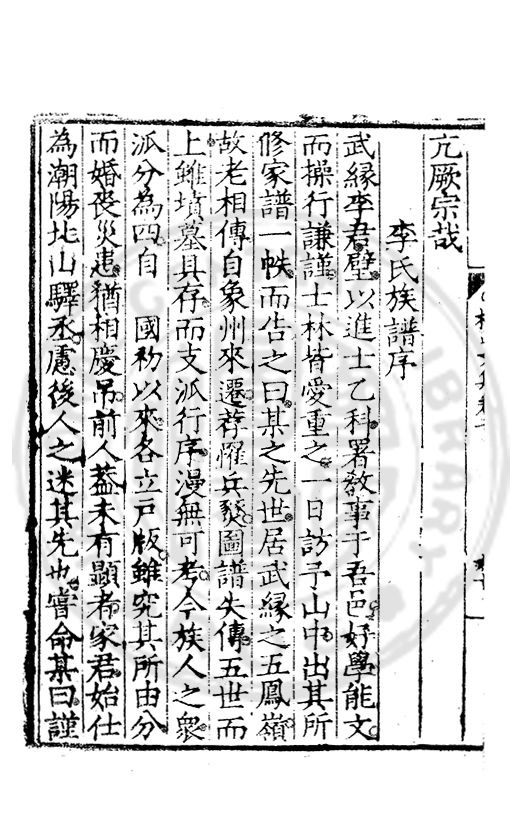 亢厥宗哉
李氏族譜序
武縁李君璧以進士乙科署教事于吾邑好學能文
而操行謙謹士林皆愛重之一日訪予山中出其所
修家譜一帙而告之曰某之先世居武縁之五鳳嶺
故老相傳自象州來遷荐罹兵燹圖譜失傳五世而
上雖墳墓具存而支派行序漫無可考今族人之衆
派分為四自 國初以來各立戸版雖究其所由分
而婚喪災患猶相慶吊前人蓋未有顯者家君始仕
為潮陽北山驛丞慮後人之迷其先也嘗命某曰謹